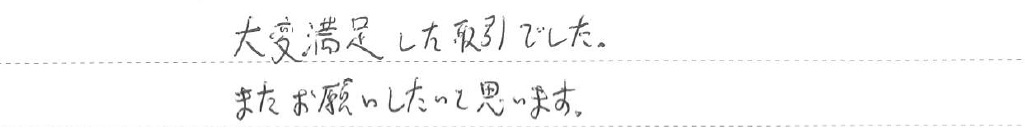 大変満足した取引でした。
またお願いしたいと思います。